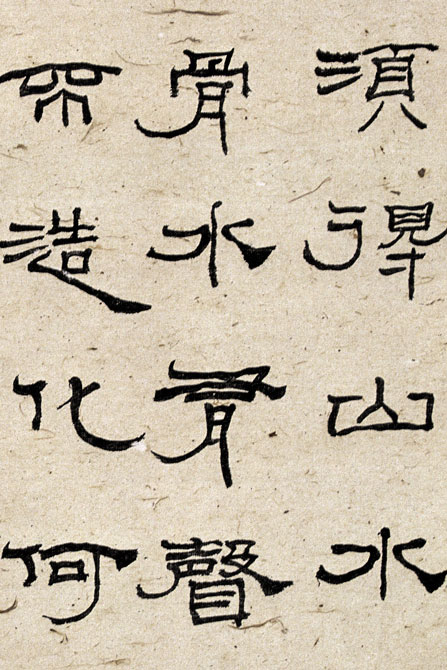 須得山水
骨水有聲
眾造化何